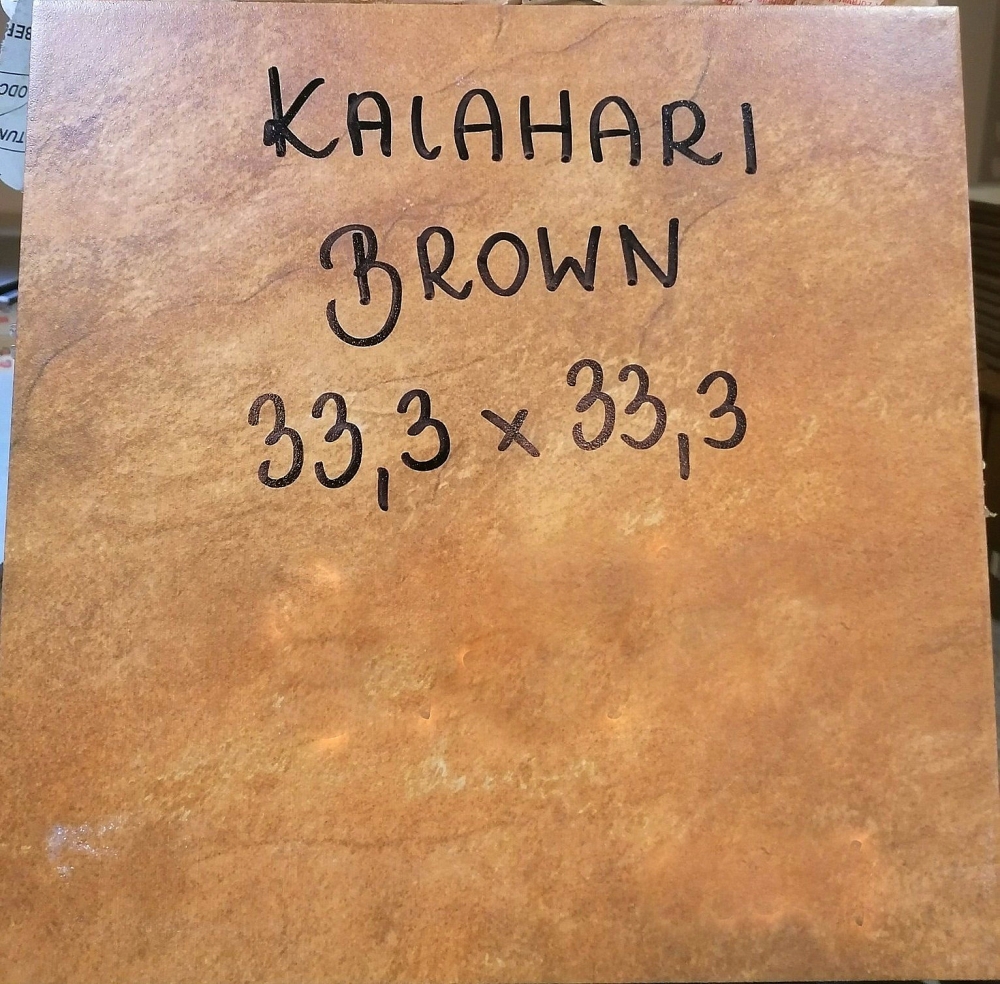 KALAHARI
BROWN
33,3 x 33,3